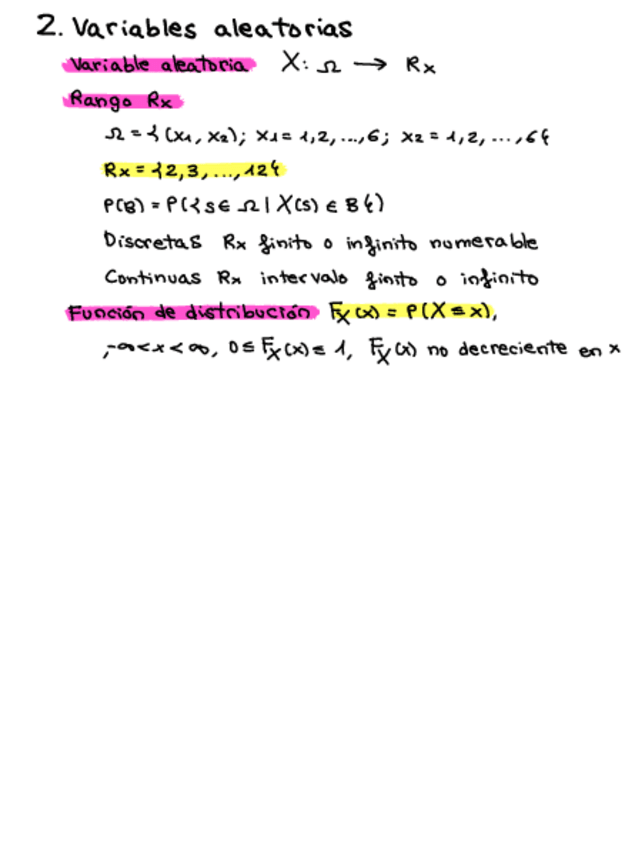 2. Variables aleatorias
Variable aleatoria X: Ω → Rx
Rango Rx
Ω = {(x1, x2); x1 = 1,2,...,6; x2 = 1,2,...,6}
Rx = {2,3,...,12}
P(B) = P({s ∈ Ω | X(s) ∈ B})
Discretas Rx finito o infinito numerable
Continuas Rx intervalo finito o infinito
Función de distribución Fx(x) = P(X ≤ x),
;-∞<x<∞, 0≤Fx(x)≤1, Fx(x) no decreciente en x